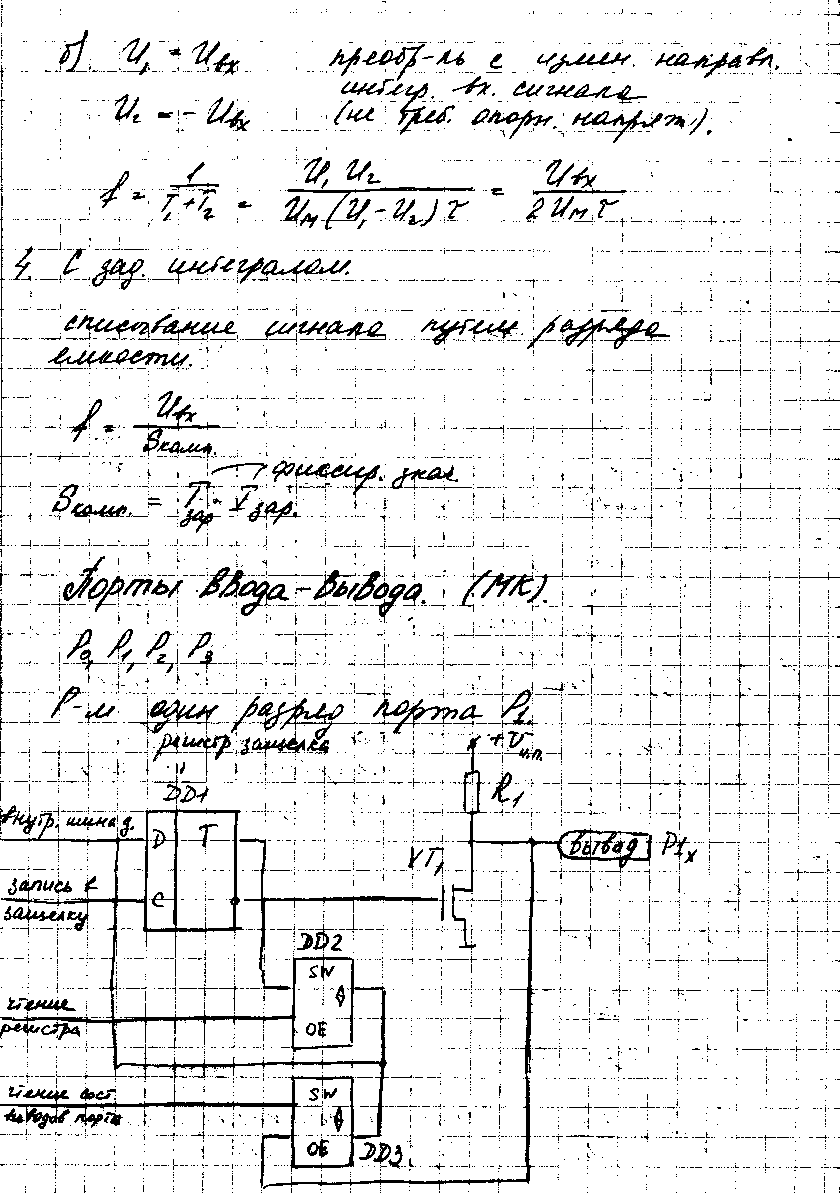 б). U₁ = Uвх преобр-ль с измен. направл.
интегр. вх. сигнала
U₂ = - Uвх (не треб. опорн. напряж.).
f = 1/(T₁+T₂) = U₁ U₂/(Uм(U₁-U₂)τ) = Uвх/(2Uмτ)
4. С зад. интегралом.
списывание сигнала путем разряда
емкости.
f = Uвх/Sкомп.
фиксир. знач.
Sкомп. = Tзар · Iзар.
Порты ввода-вывода. (МК).
P₀, P₁, P₂, P₃
Р-м один разряд порта P1.
регистр защелка
+Uи.п.
DD1
R1
внутр. шина д.
D T
VT1
вывод P1x
запись в
защелку
C
DD2
SW
чтение
регистра
OE
чтение сост.
выводов порта
SW
OE
DD3.